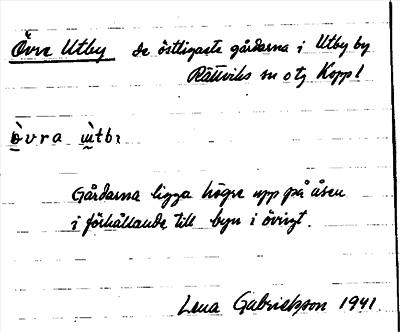 Övre Utby de östligaste gårdarna i Utby by
Rättviks sn o tg Koppl
òvra ùtbı
Gårdarna ligga högre upp på åsen
i förhållande till byn i övrigt.
Lena Gabrielsson 1941.